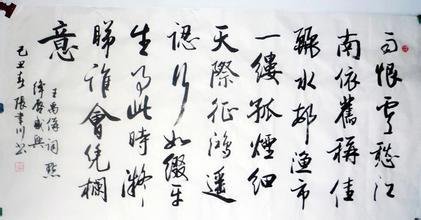 雨恨雲愁江
南依舊稱佳
麗水邨漁市
一縷孤煙細
天際征鴻遥
認行如綴平
生事此時凝
睇誰會凭欄
意
王禹偁詞點
絳唇感興
己丑春張書川书